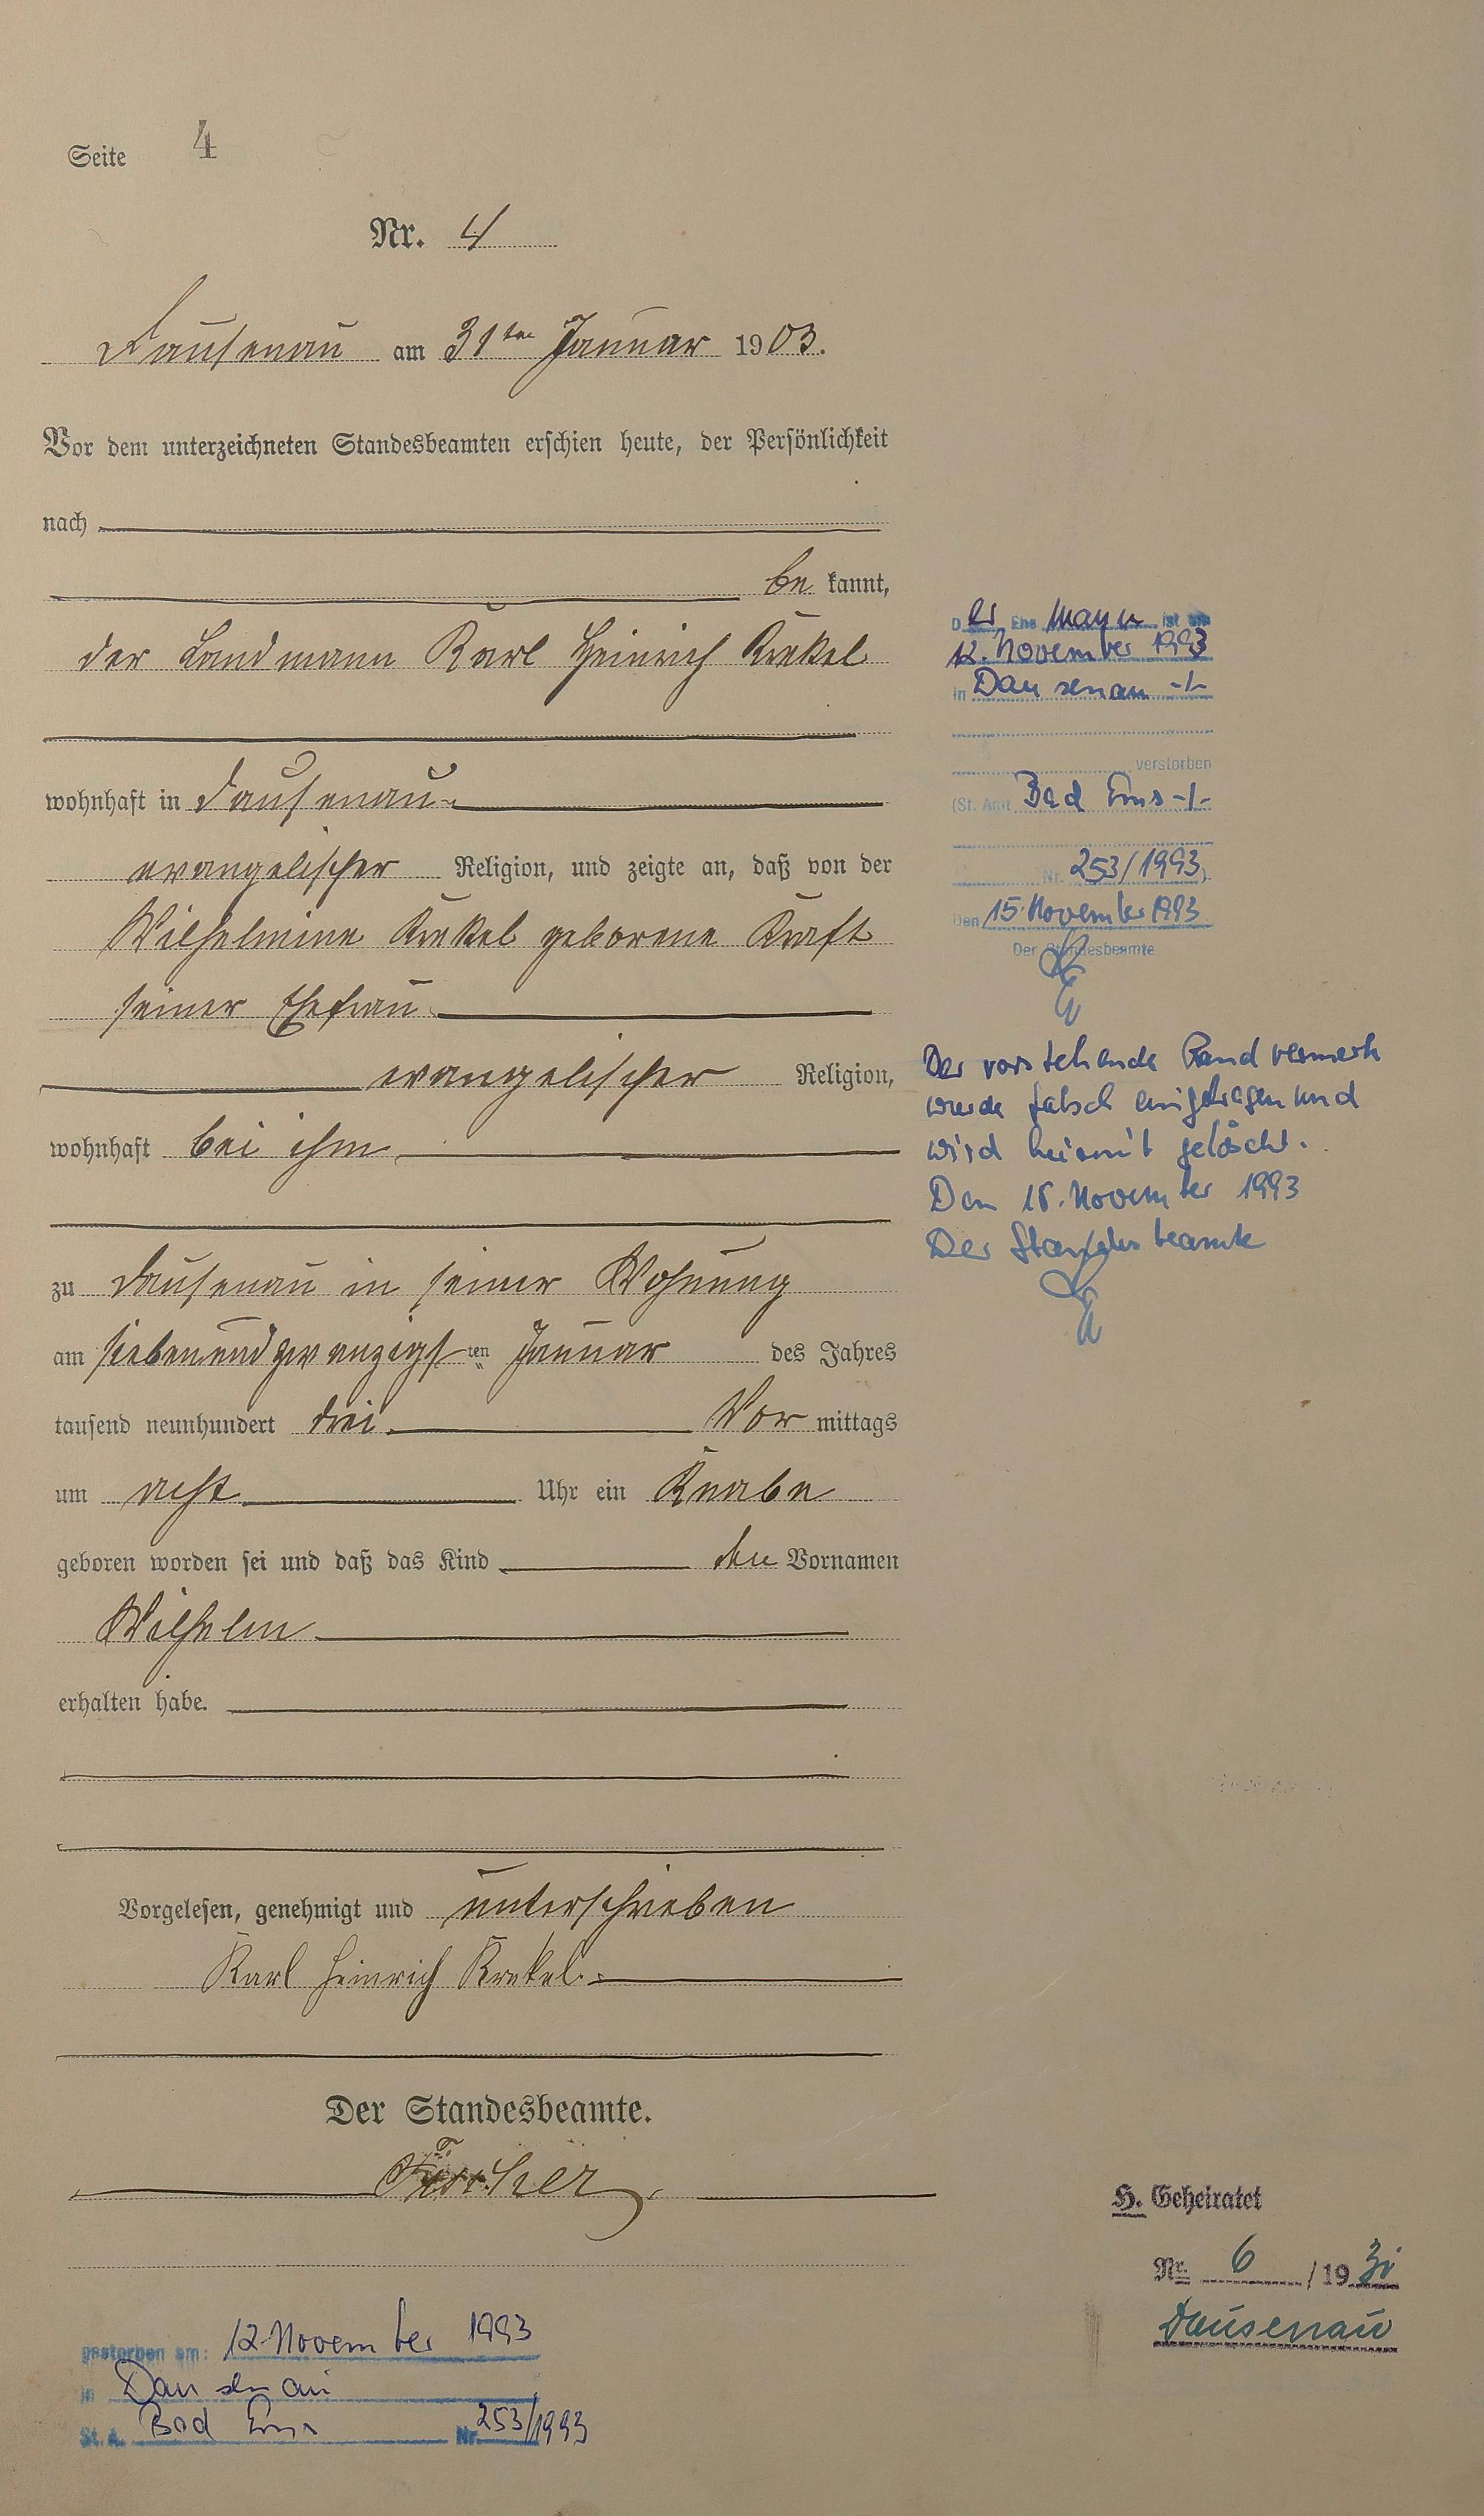 Seite 4
Nr. 4
Dausenau am 31ten Januar 1903.
Vor dem unterzeichneten Standesbeamten erschien heute, der Persönlichkeit
nach
be kannt,
der Landmann Karl Heinrich Krekel
wohnhaft in Dausenau
evangelischer Religion, und zeigte an, daß von der
Wilhelmine Krekel geborene Kraft
seiner Ehefrau
evangelischer Religion,
wohnhaft bei ihm
zu Dausenau in seiner Wohnung
am siebenundzwanzigsten Januar des Jahres
tausend neunhundert drei Vor mittags
um acht Uhr ein Knabe
geboren worden sei und daß das Kind den Vornamen
Wilhelm
erhalten habe.
Vorgelesen, genehmigt und unterschrieben
Karl Heinrich Krekel.
Der Standesbeamte.
gestorben am: 12. November 1993
in Dausenau
St. A. Bad Ems Nr. 253/1993
Der Ehemann ist am
12. November 1993
in Dausenau -/-
verstorben
(St. Amt Bad Ems -/-
Nr. 253/1993)
Den 15. November 1993
Der Standesbeamte
Der vorstehende Randvermerk
wurde falsch eingetragen und
wird hiermit gelöscht.
Den 15. November 1993
Der Standesbeamte
H. Geheiratet
Nr. 6 /19 31
Dausenau